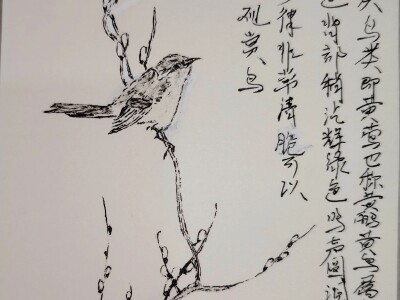 鸟类即黄莺也称黄鹂黄鸟属
色背部稍泛辉绿色鸣声圆润
律非常清脆可以
观赏鸟